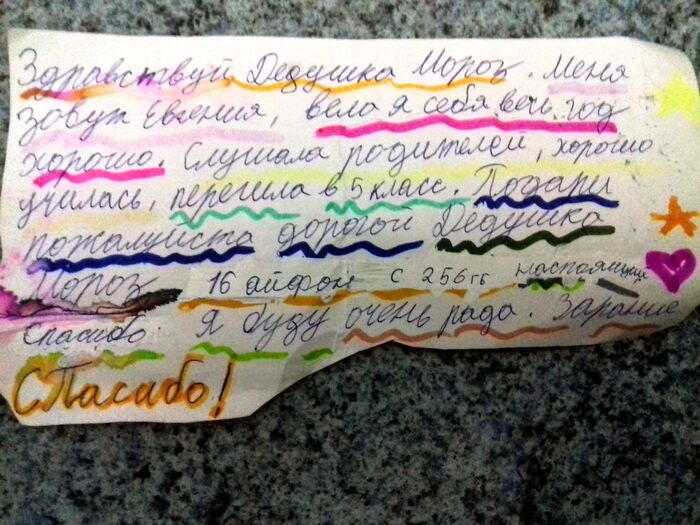 Здравствуй Дедушка Мороз. Меня
зовут Евгения, вела я себя весь год
хорошо. Слушала родителей, хорошо
училась, перешла в 5 класс. Подари
пожалуйста дорогой Дедушка
Мороз 16 айфон с 256гб настоящий
спасибо. Я буду очень рада. Зарание
Спасибо!